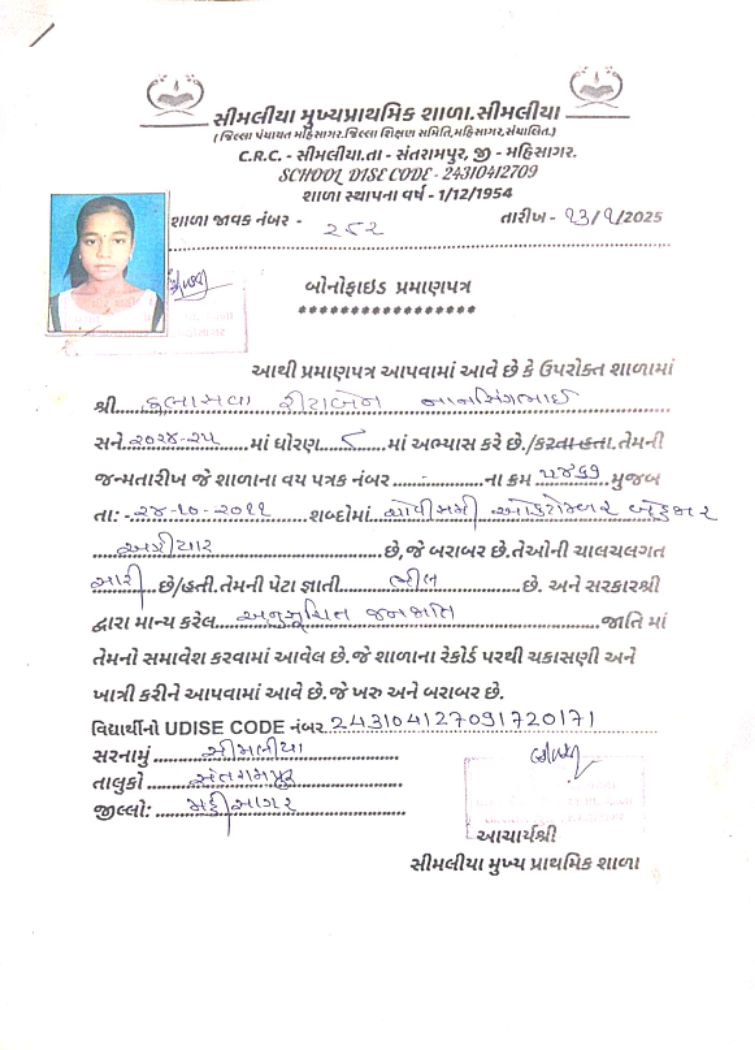 સીમલીયા મુખ્યપ્રાથમિક શાળા.સીમલીયા
( જિલ્લા પંચાયત મહિસાગર.જિલ્લા શિક્ષણ સમિતિ,મહિસાગર,સંચાલિત.)
C.R.C. - સીમલીયા.તા - સંતરામપુર, જી - મહિસાગર.
SCHOOL DISE CODE - 24310412709
શાળા સ્થાપના વર્ષ - 1/12/1954
શાળા જાવક નંબર - ૨૮૨ તારીખ - ૧3/૧/2025
બોનોફાઇડ પ્રમાણપત્ર
આથી પ્રમાણપત્ર આપવામાં આવે છે કે ઉપરોક્ત શાળામાં
શ્રી..... રીટાબેન નાનસિંગભાઈ
સને ૨૦૨૪-૨૫ માં ધોરણ ૮ માં અભ્યાસ કરે છે./કરતા હતા.તેમની
જન્મતારીખ જે શાળાના વય પત્રક નંબર ........-........ના ક્રમ મુજબ
તા: - ૨૪-૧૦-૨૦૧૧ શબ્દોમાં ચોવીસમી ઓક્ટોમ્બર બેહજાર
અગીયાર છે,જે બરાબર છે.તેઓની ચાલચલગત
સારી છે/હતી.તેમની પેટા જ્ઞાતી ભીલ છે. અને સરકારશ્રી
દ્વારા માન્ય કરેલ અનુસૂચિત જનજાતિ જાતિ માં
તેમનો સમાવેશ કરવામાં આવેલ છે.જે શાળાના રેકોર્ડ પરથી ચકાસણી અને
ખાત્રી કરીને આપવામાં આવે છે.જે ખરુ અને બરાબર છે.
વિદ્યાર્થીનો UDISE CODE નંબર 243104127091720171
સરનામું સીમલીયા
તાલુકો સંતરામપુર
જીલ્લો: મહીસાગર
આચાર્યશ્રી
સીમલીયા મુખ્ય પ્રાથમિક શાળા